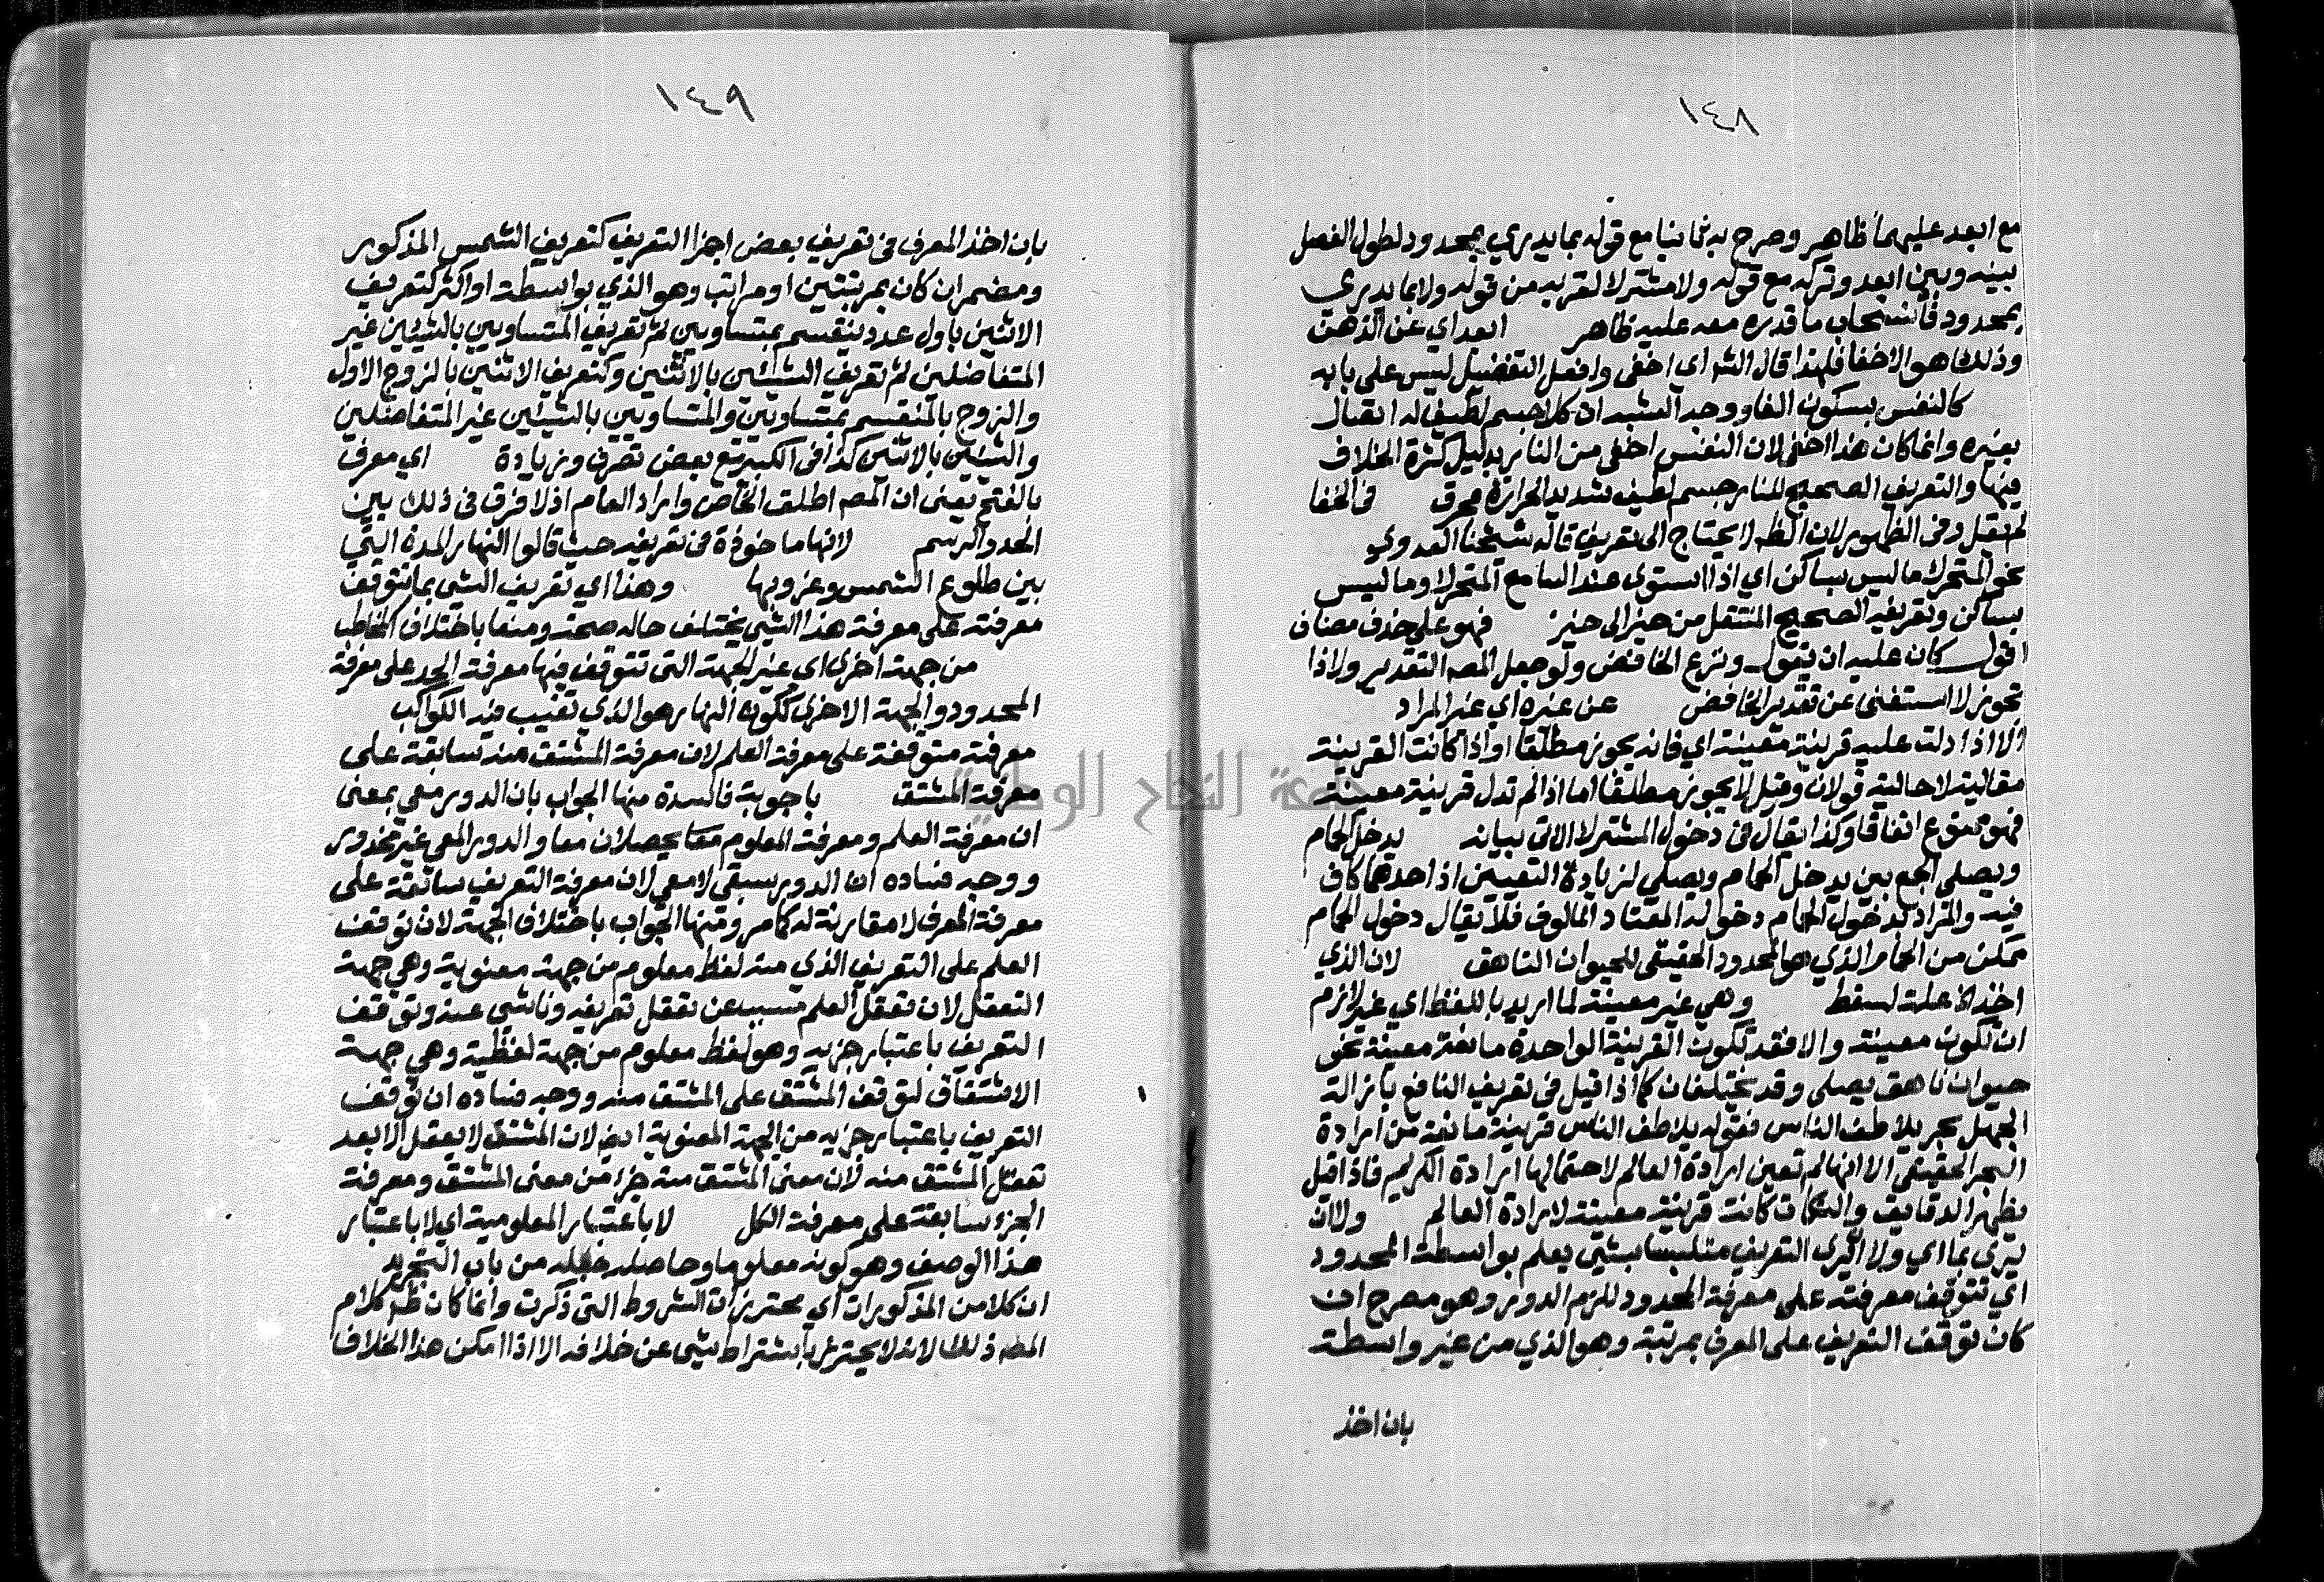 ١٤٨
مع ابعد عليهما ظاهر وصرح به ثانيا مع قوله بما يدري بمحدود لطول الفصل
بينه وبين ابعد وتركه مع قوله ولا مشترك لقربه من قوله ولا بما يدري
بمحدود فانسحاب ما قدره معه عليه ظاهر ابعد اي عن الذهن
وذلك هو الاخفا فلهذا قال الش اي اخفى وافعل التفضيل ليس على بابه
كالنفس بسكون الفا ووجه الشبه ان كلا جسم لطيف له اتصال
بغيره وانما كان هذا اخفى لان النفس اخفى من النار بدليل كثرة الخلاف
فيها والتعريف الصحيح للنار جسم لطيف شديد الحرارة محرق في الخفا
لم يقل وفي الظهور لان الظ لا يحتاج الى تعريف قاله شيخنا العدوي
نحو المتحرك ما ليس بساكن اي اذا استوى عند السامع المتحرك وما ليس
بساكن وتعريفه الصحيح المنتقل من حيز الى حيز فهو على حذف مضاف
اقول كان عليه ان يقول ونزع الخافض ولو جعل المص التقدير ولا ذا
تجوز لاستغنى عن تقدير الخافض عن غيره اي غير المراد
الا اذا دلت عليه قرينة معينة اي فانه يجوز مطلقا او اذا كانت القرينة
مقالية لا حالية قولان وقيل لا يجوز مطلقا اما اذا لم تدل قرينة معينة
فهو ممنوع اتفاقا وكذا يقال في دخول المشترك الاتي بيانه يدخل الحمام
ويصلي الجمع بين يدخل الحمام ويصلي لزيادة التعيين اذ احدهما كاف
فيه والمراد بدخول الحمام دخوله المعتاد المالوف فلا يقال دخول الحمام
ممكن من الحمار الذي هو المحدود الحقيقي للحيوان الناهق لان الذي
اخذ الخ علة لسقط وهي غير معينة لما اريد باللفظ اي غير لازم
ان تكون معينة والا فقد تكون القرينة الواحدة مانعة معينة نحو
حيوان ناهق يصلي وقد يختلفان كما اذا قيل في تعريف النافع بازالة
الجهل بحر يلاطف الناس فقوله يلاطف الناس قرينة مانعة من ارادة
البحر الحقيقي الا انها لم تعين ارادة العالم لاحتمالها ارادة الكريم فاذا قيل
يظهر الدقايق والنكات كانت قرينة معينة لارادة العالم ولان
يرى بما اي ولا ان يرى التعريف متلبسا بشي يعلم بواسطة المحدود
اي تتوقف معرفته على معرفة المحدود للزم الدور وهو مصرح ان
كان توقف التعريف على المعرف بمرتبة وهو الذي من غير واسطة
بان اخذ
١٤٩
بان اخذ المعرف في تعريف بعض اجزا التعريف كتعريف الشمس المذكور
ومضمر ان كان بمرتبتين او مراتب وهو الذي بواسطة او اكثر كتعريف
الاثنين باول عدد ينقسم بمتساويين ثم تعريف المتساويين بالشيئين غير
المتفاضلين ثم تعريف الشيئين بالاثنين وكتعريف الاثنين بالزوج الاول
والزوج بالمنقسم بمتساويين والمتساويين بالشيئين غير المتفاضلين
والشيئين بالاثنين كذا في الكبير مع بعض تصرف وزيادة اي معرف
بالفتح يعني ان المص اطلق الخاص واراد العام اذ لا فرق في ذلك بين
الحد والرسم لانها ماخوذة في تعريفه حيث قالوا النهار المدة التي
بين طلوع الشمس وغروبها وهذا اي تعريف الشي بما تتوقف
معرفته على معرفة هذا الشي يختلف حاله صحة ومنعا باختلاف المخاطب
من جهة اخرى اي غير الجهة التي تتوقف فيها معرفة الحد على معرفة
المحدود والجهة الاخرى ككون النهار هو الذي تغيب فيه الكواكب
معرفته متوقفة على معرفة العلم لان معرفة المشتق منه سابقة على
معرفة المشتق باجوبة فاسدة منها الجواب بان الدور معي بمعنى
ان معرفة العلم ومعرفة المعلوم معا يحصلان معا والدور المعي غير محذور
ووجه فساده ان الدور سبقي لا معي لان معرفة التعريف سابقة على
معرفة المعرف لا مقارنة له كما مر ومنها الجواب باختلاف الجهة لان توقف
العلم على التعريف الذي منه لفظ معلوم من جهة معنوية وهي جهة
التعقل لان تعقل العلم مسبب عن تعقل تعريفه وناشي عنه وتوقف
التعريف باعتبار جزيه وهو لفظ معلوم من جهة لفظية وهي جهة
الاشتقاق لتوقف المشتق على المشتق منه ووجه فساده ان توقف
التعريف باعتبار جزيه من الجهة المعنوية ايض لان المشتق لا يعقل الا بعد
تعقل المشتق منه لان معنى المشتق منه جزء من معنى المشتق ومعرفة
الجزء سابقة على معرفة الكل لا باعتبار المعلومية اي لا باعتبار
هذا الوصف وهو كونه معلوما وحاصله جعله من باب التجريد
ان كلا من المذكورات اي محترزات الشروط التي ذكرت وانما كان ظ كلام
المص ذلك لانه لا يحترز باشتراط شي عن خلافه الا اذا امكن هذا الخلاف
جامعة النجاح الوطنية